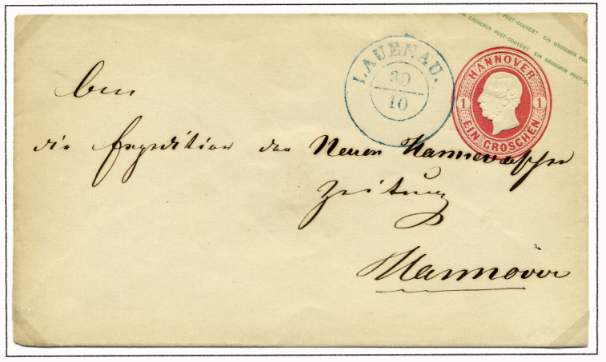 EIN GROSCHEN POST-COUVERT EIN GROSCHEN POST-COUVERT
LAUENAU.
30
10
HANNOVER
1 1
EIN GROSCHEN
An
die Expedition der Neuen Hannoverschen
Zeitung
Hannover